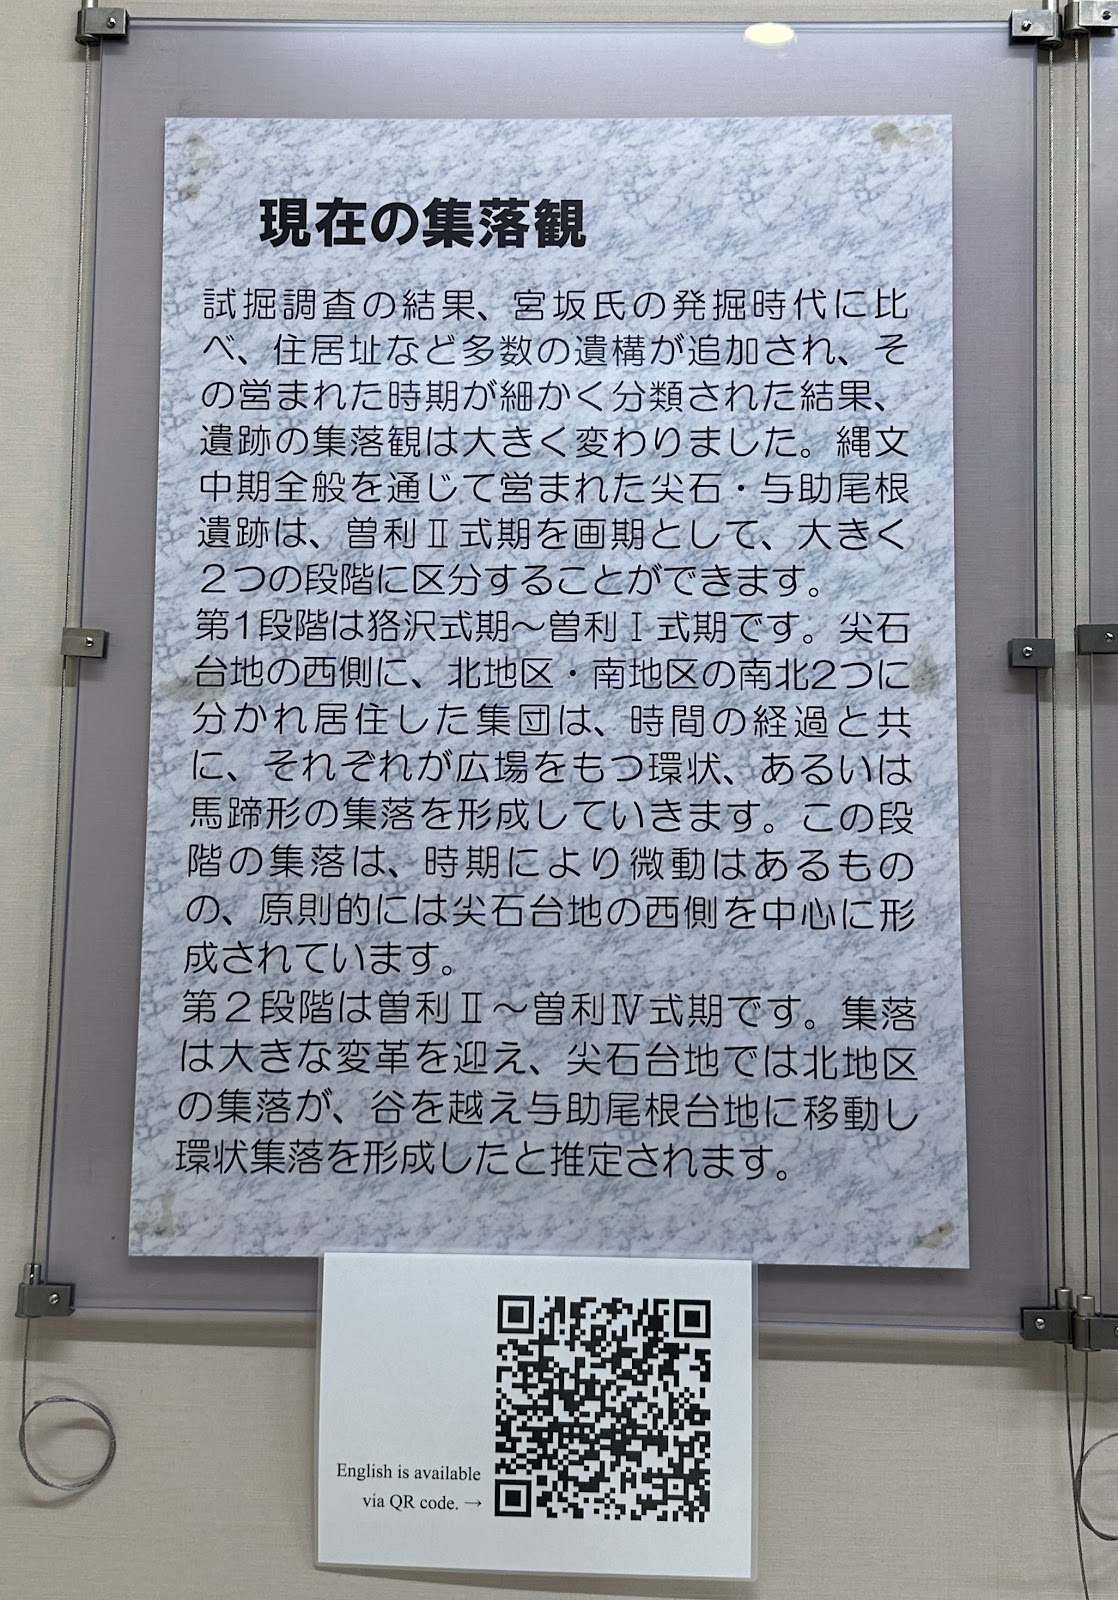 現在の集落観
試掘調査の結果、宮坂氏の発掘時代に比
べ、住居址など多数の遺構が追加され、そ
の営まれた時期が細かく分類された結果、
遺跡の集落観は大きく変わりました。縄文
中期全般を通じて営まれた尖石・与助尾根
遺跡は、曽利Ⅱ式期を画期として、大きく
２つの段階に区分することができます。
第1段階は狢沢式期～曽利Ⅰ式期です。尖石
台地の西側に、北地区・南地区の南北2つに
分かれ居住した集団は、時間の経過と共
に、それぞれが広場をもつ環状、あるいは
馬蹄形の集落を形成していきます。この段
階の集落は、時期により微動はあるもの
の、原則的には尖石台地の西側を中心に形
成されています。
第２段階は曽利Ⅱ～曽利Ⅳ式期です。集落
は大きな変革を迎え、尖石台地では北地区
の集落が、谷を越え与助尾根台地に移動し
環状集落を形成したと推定されます。
English is available
via QR code. →